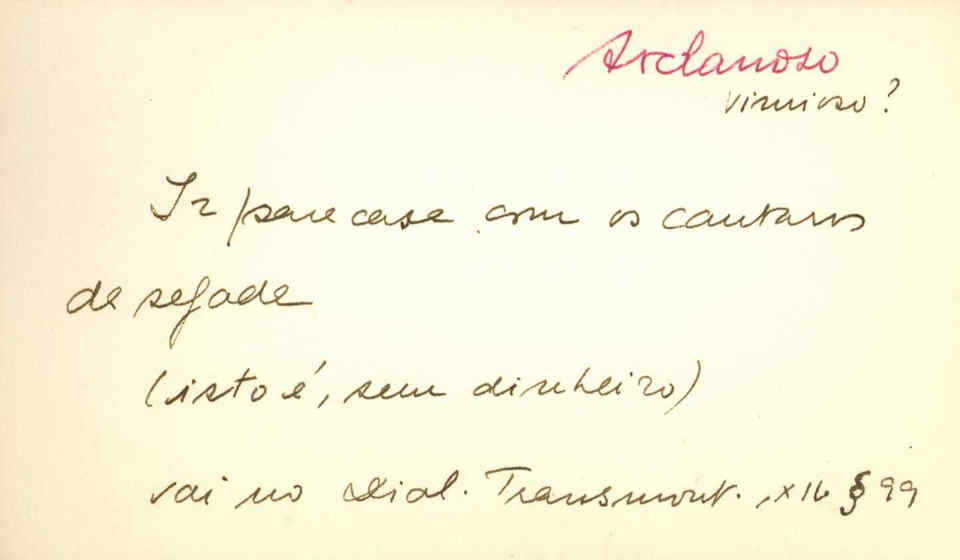 Avelanoso
Vimioso?
Ir para casa com os cantaros
de segada
(isto é, sem dinheiro)
vai no Dial. Transmont. § 99